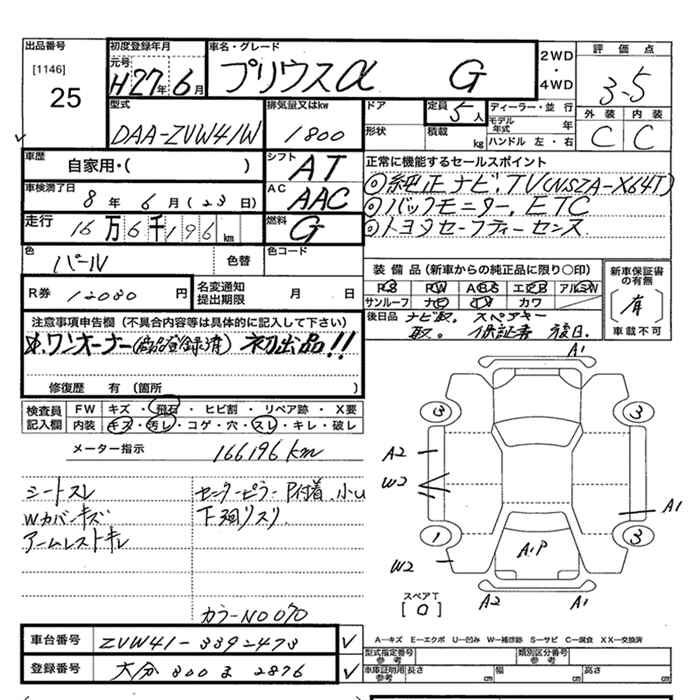 出品番号
[1146]
25
初度登録年月
元号
H27年6月
車名・グレード
プリウスα G
2WD
・
4WD
評価点
3-5
外装 内装
C C
型式
DAA-ZVW41W
排気量又はkw
1800
ドア
形状
定員
5人
積載 kg
ディーラー・並行
モデル年式 年
ハンドル 左・右
車歴
自家用・( )
シフト
AT
車検満了日
8年6月(23日)
AC
AAC
走行
16万6千196km
燃料
G
正常に機能するセールスポイント
◎純正ナビ.TV(NSZA-X64T)
◎バックモニター.ETC
◎トヨタセーフティーセンス
色
パール
色替
色コード
R券 12030円
名変通知
提出期限
月 日
装備品(新車からの純正品に限り○印)
PS PW ABS エアB アルミW
サンルーフ ナビ TV カワ
後日品 ナビ取. スペアキー
取. 保証書 後日.
新車保証書
の有無
(有)
車載不可
注意事項申告欄(不具合内容等は具体的に記入して下さい)
ワンオーナー(商品登録済) 初出品!!
修復歴 有(箇所 )
検査員
記入欄
FW キズ・飛石・ヒビ割・リペア跡・X要
内装 キズ・汚レ・コゲ・穴・スレ・キレ・破レ
メーター指示 166196km
シートスレ
Wカバーキズ
アームレストキレ
センターピラーP付着.小U
下廻リスリ
カラーNO 070
A1
3 3
A2
W2
A1
1 3
W2
A.P
A2 A1
スペアT
[0]
車台番号 ZVW41-3392473
登録番号 大分 300 ま 2876
A―キズ E―エクボ U―凹み W―補修跡 S―サビ C―腐食 XX―交換済
型式指定番号
参考
類別区分番号
参考
車庫証明用
参考
長さ cm 幅 cm 高さ cm